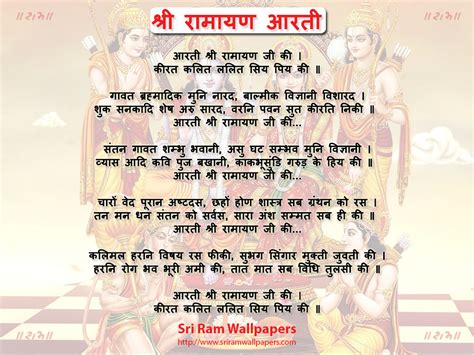 श्री रामायण आरती
आरती श्री रामायण जी की ।
कीरत कलित ललित सिय पिय की ॥
गावत ब्रह्मादिक मुनि नारद, बाल्मीक विज्ञानी विशारद ।
शुक सनकादि शेष अरु सारद, वरनि पवन सुत कीरति निकी ॥
आरती श्री रामायण जी की...
संतन गावत शम्भु भवानी, असु घट सम्भव मुनि विज्ञानी ।
व्यास आदि कवि पुंज बखानी, काकभूसुंडि गरुड़ के हिय की ॥
आरती श्री रामायण जी की...
चारों वेद पूरान अष्टदस, छहों होण शास्त्र सब ग्रंथन को रस ।
तन मन धन संतन को सर्वस, सारा अंश सम्मत सब ही की ॥
आरती श्री रामायण जी की...
कलिमल हरनि विषय रस फीकी, सुभग सिंगार मुक्ती जुवती की ।
हरनि रोग भव भूरी अमी की, तात मात सब विधि तुलसी की ॥
आरती श्री रामायण जी की ।
कीरत कलित ललित सिय पिय की ॥
Sri Ram Wallpapers
http://www.sriramwallpapers.com